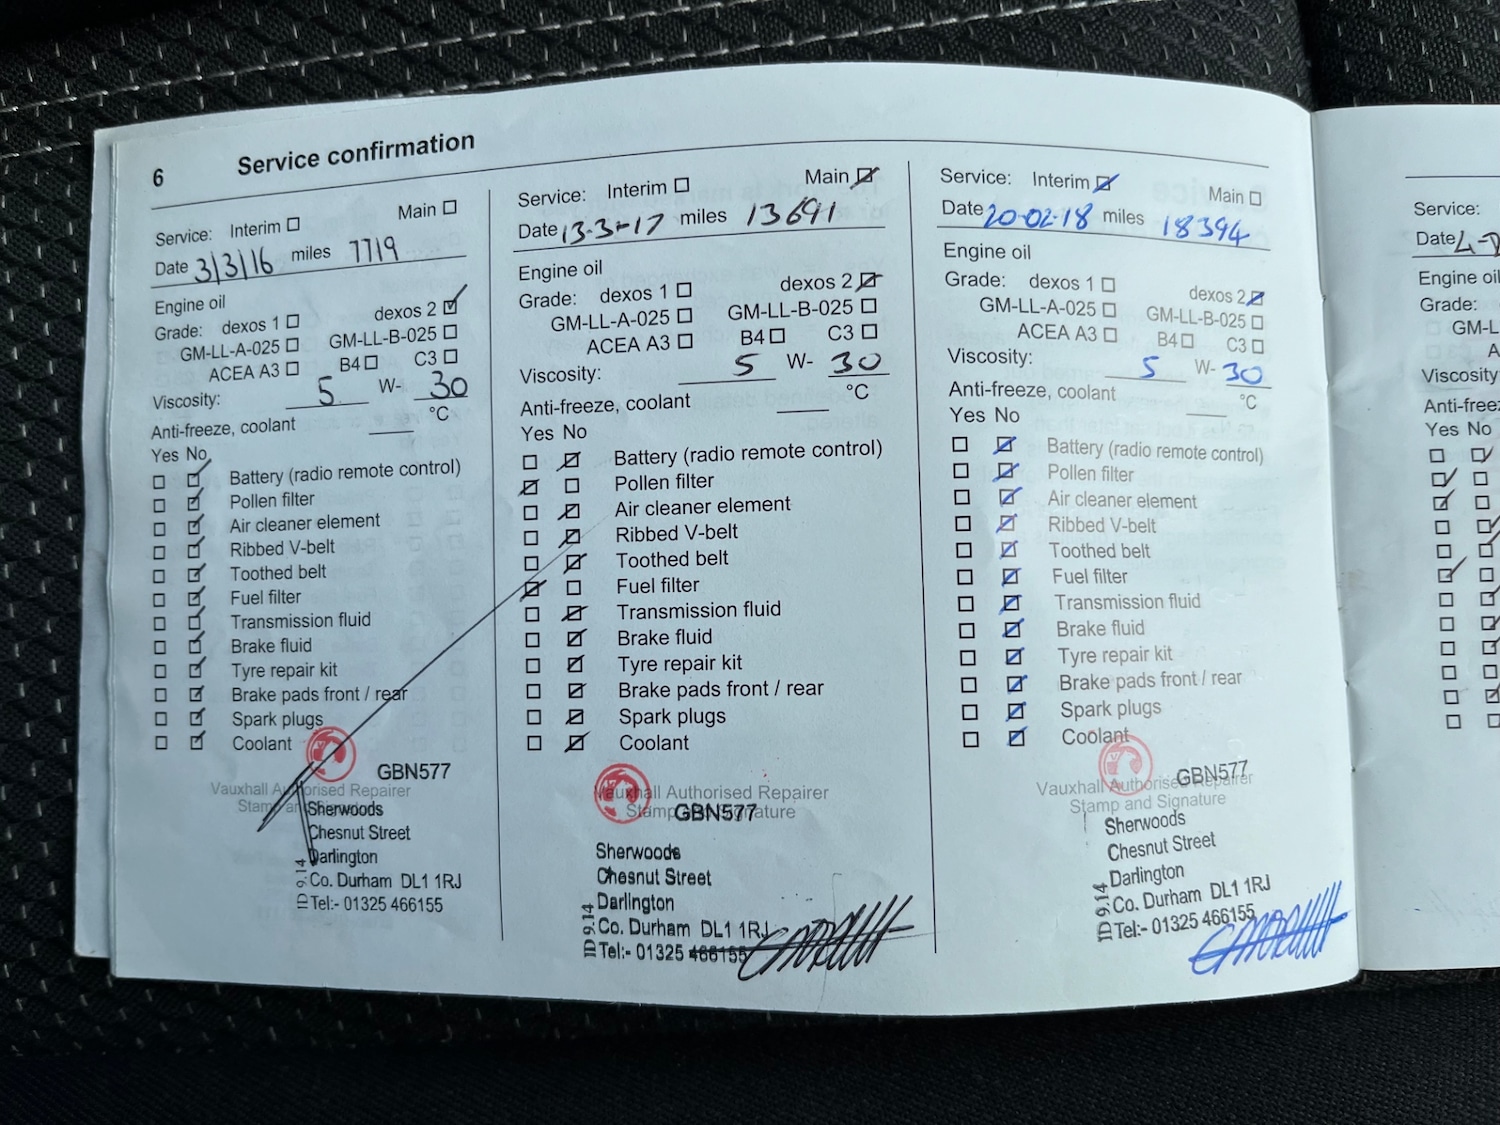 6 Service confirmation
Service: Interim Main
Date 3/3/16 miles 7719
Engine oil
Grade: dexos 1 dexos 2
GM-LL-A-025 GM-LL-B-025
ACEA A3 B4 C3
Viscosity: 5 W- 30
Anti-freeze, coolant °C
Yes No
Battery (radio remote control)
Pollen filter
Air cleaner element
Ribbed V-belt
Toothed belt
Fuel filter
Transmission fluid
Brake fluid
Tyre repair kit
Brake pads front / rear
Spark plugs
Coolant
GBN577
Vauxhall Authorised Repairer
Stamp and
Sherwoods
Chesnut Street
Darlington
Co. Durham DL1 1RJ
Tel:- 01325 466155
ID 9.14
Service: Interim Main
Date 13-3-17 miles 13691
Engine oil
Grade: dexos 1 dexos 2
GM-LL-A-025 GM-LL-B-025
ACEA A3 B4 C3
Viscosity: 5 W- 30
Anti-freeze, coolant °C
Yes No
Battery (radio remote control)
Pollen filter
Air cleaner element
Ribbed V-belt
Toothed belt
Fuel filter
Transmission fluid
Brake fluid
Tyre repair kit
Brake pads front / rear
Spark plugs
Coolant
Vauxhall Authorised Repairer
Stamp and Signature
GBN577
Sherwoods
Chesnut Street
Darlington
Co. Durham DL1 1RJ
Tel:- 01325 466155
ID 9.14
Service: Interim Main
Date 20-02-18 miles 18394
Engine oil
Grade: dexos 1 dexos 2
GM-LL-A-025 GM-LL-B-025
ACEA A3 B4 C3
Viscosity: 5 W- 30
Anti-freeze, coolant °C
Yes No
Battery (radio remote control)
Pollen filter
Air cleaner element
Ribbed V-belt
Toothed belt
Fuel filter
Transmission fluid
Brake fluid
Tyre repair kit
Brake pads front / rear
Spark plugs
Coolant
GBN577
Vauxhall Authorised Repairer
Stamp and Signature
Sherwoods
Chesnut Street
Darlington
Co. Durham DL1 1RJ
Tel:- 01325 466155
ID 9.14
Service:
Date
Engine oil
Grade:
GM-L
A
Viscosity
Anti-freez
Yes No